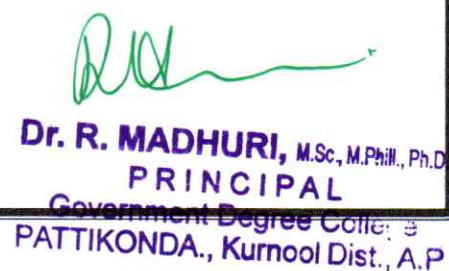 Dr. R. MADHURI, M.Sc., M.Phill., Ph.D
PRINCIPAL
Government Degree College
PATTIKONDA., Kurnool Dist., A.P